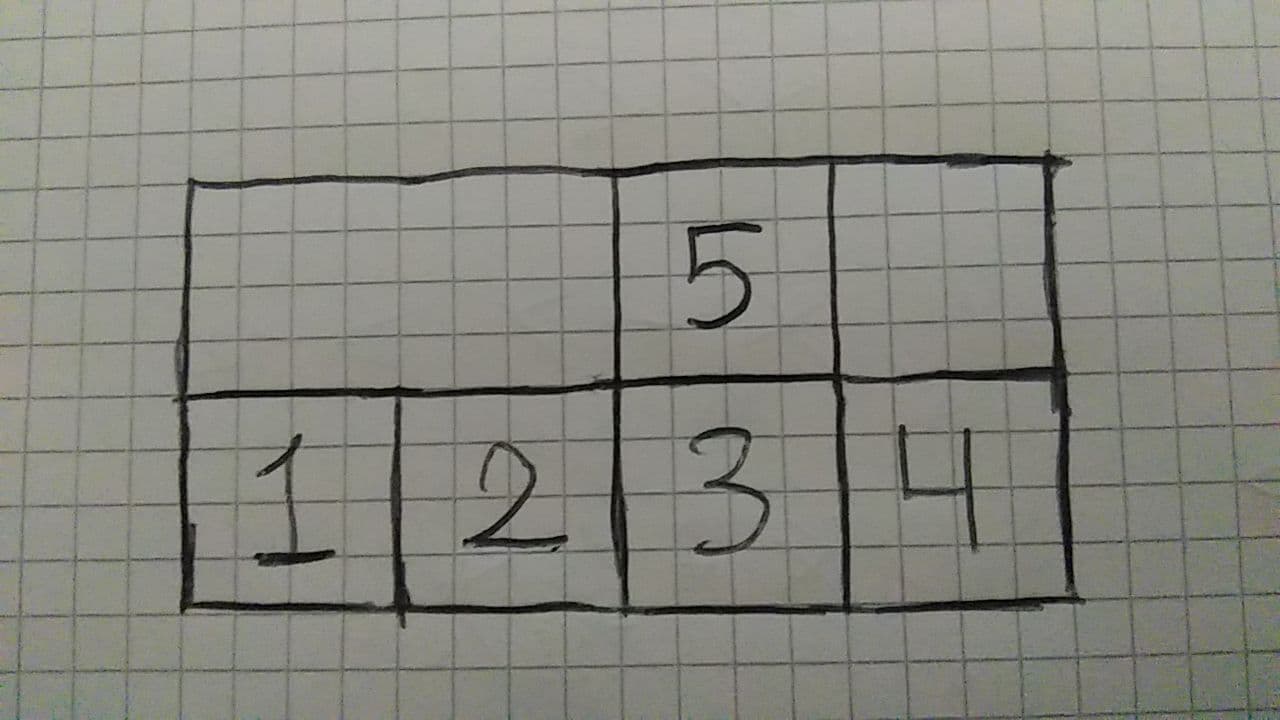 5
1 2 3 4